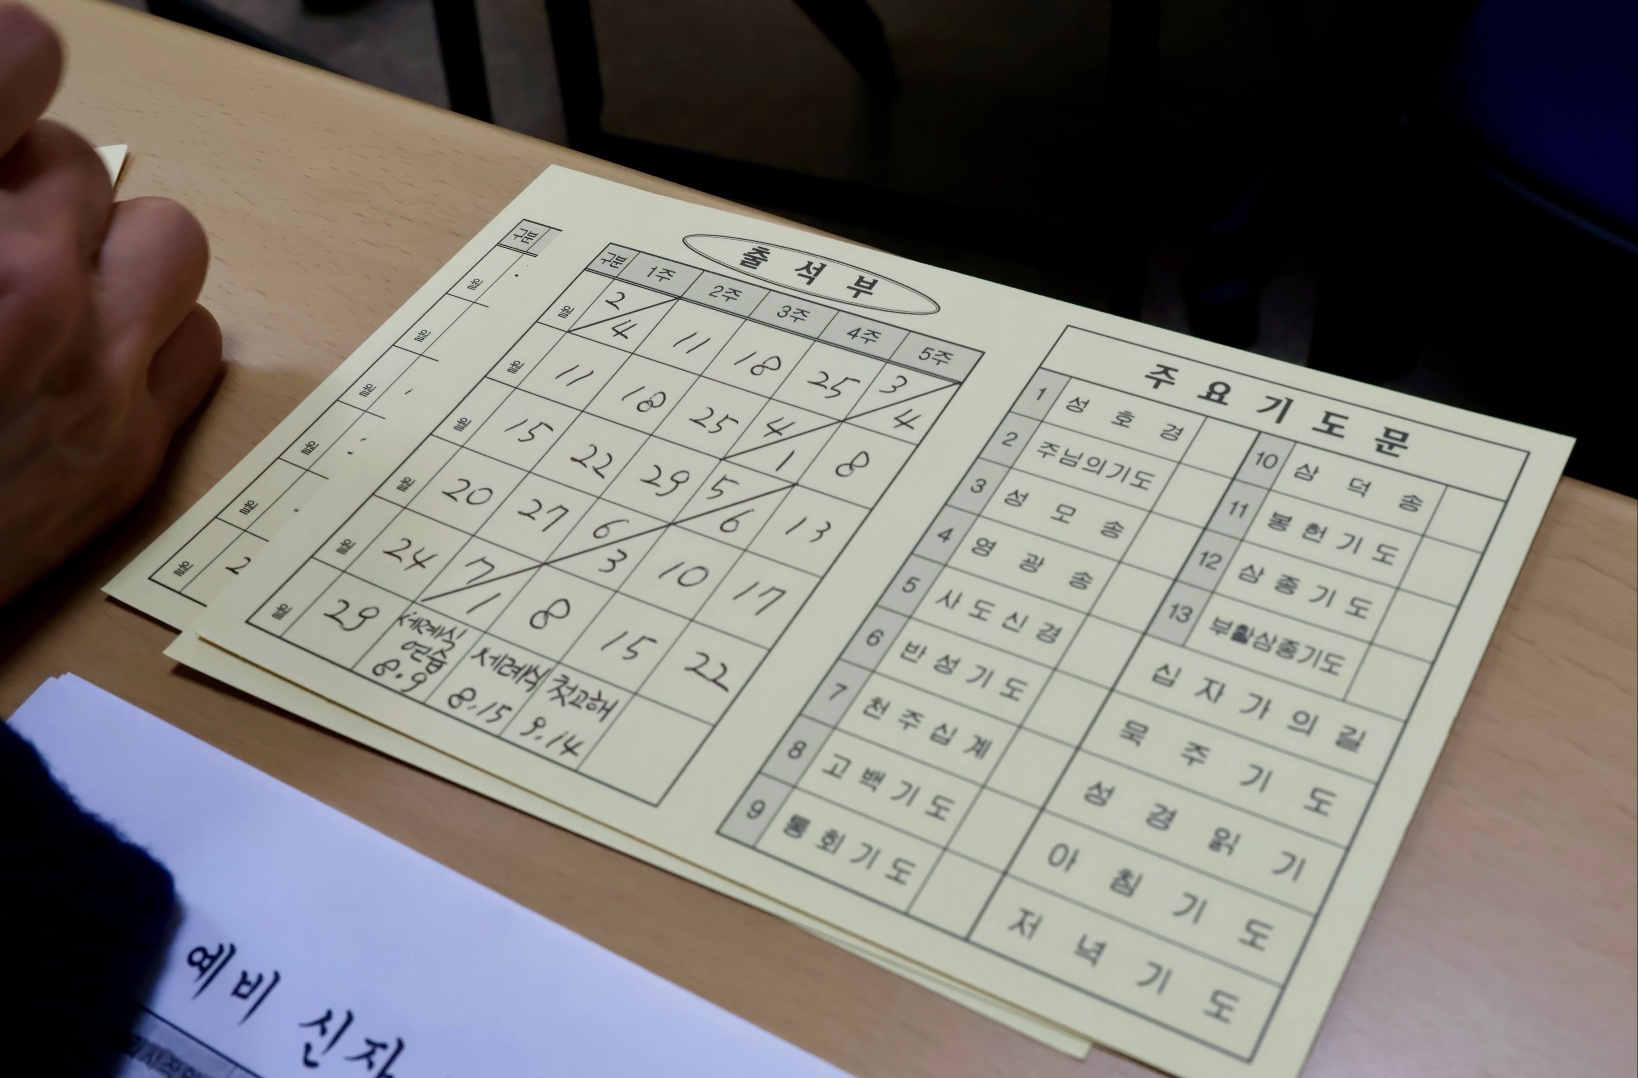 출석부
구분 1주 2주 3주 4주 5주
월 2/4 11 18 25 3/4
월 11 18 25 4/1 8
월 15 22 29 5/6 13
월 20 27 6/3 10 17
월 24 7/1 8 15 22
월 29 세례식 연습 8.9 세례식 8.15 첫고해 9.14
주요기도문
1 성호경
2 주님의기도
3 성모송
4 영광송
5 사도신경
6 반성기도
7 천주십계
8 고백기도
9 통회기도
10 삼덕송
11 봉헌기도
12 삼종기도
13 부활삼종기도
십자가의길
묵주기도
성경읽기
아침기도
저녁기도
구분
월
월
월
월
월
월 2
예비 신자